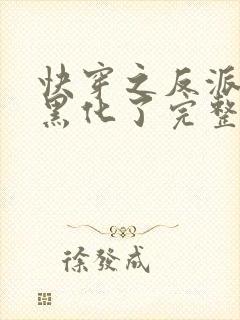 快穿之反派
黑化了完整
徐發成